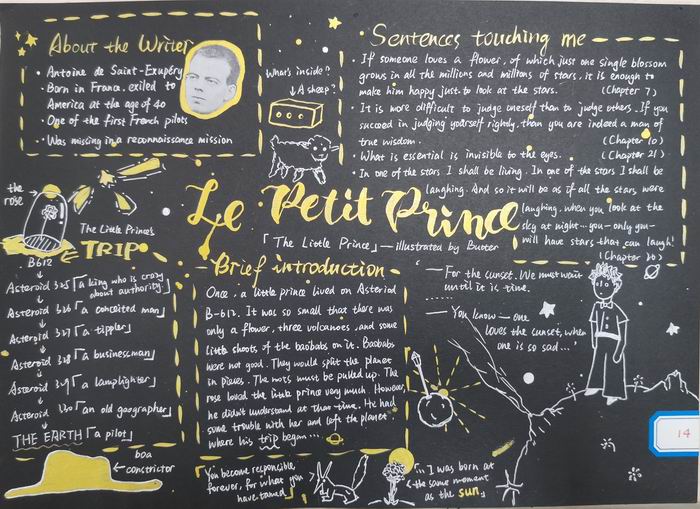 About the Writer
• Antoine de Saint-Exupéry
• Born in France, exiled to
America at the age of 40
• One of the first French pilots
• Was missing in a reconnaissance mission
What's inside?
↓ A sheep?
Sentences touching me
• If someone loves a flower, of which just one single blossom
grows in all the millions and millions of stars, it is enough to
make him happy just to look at the stars. (Chapter 7)
• It is more difficult to judge oneself than to judge others. If you
succeed in judging yourself rightly, than you are indeed a man of
true wisdom. (Chapter 10)
• What is essential is invisible to the eyes. (Chapter 21)
• In one of the stars I shall be living. In one of the stars I shall be
laughing. And so it will be as if all the stars were
laughing, when you look at the
sky at night...you—only you—
will have stars that can laugh!
(Chapter 26)
Le Petit Prince
「The Little Prince」—illustrated by
the rose
The Little Prince's
TRIP
B612
↓
Asteroid 325「a king who is crazy
about authority」
↓
Asteroid 326「a conceited man」
↓
Asteroid 327「a tippler」
↓
Asteroid 328「a businessman」
↓
Asteroid 329「a lamplighter」
↓
Asteroid 330「an old geographer」
↓
THE EARTH「a pilot」
boa
constrictor
Brief introduction
Once, a little prince lived on Asteriod
B-612. It was so small that there was
only a flower, three volcanoes, and some
little shoots of the baobabs on it. Baobabs
were not good. They would split the planet
in pieces. The roots must be pulled up. The
rose loved the little prince very much. However,
he didn't understand at that time. He had
some trouble with her and left the planet.
where his trip began...
'—For the sunset. We must wait
until it is time.
......
— You know — one
loves the sunset, when
one is so sad...'
You become responsible,
forever, for what you
have tamed.
「... I was born at
the same moment
as the sun」
14